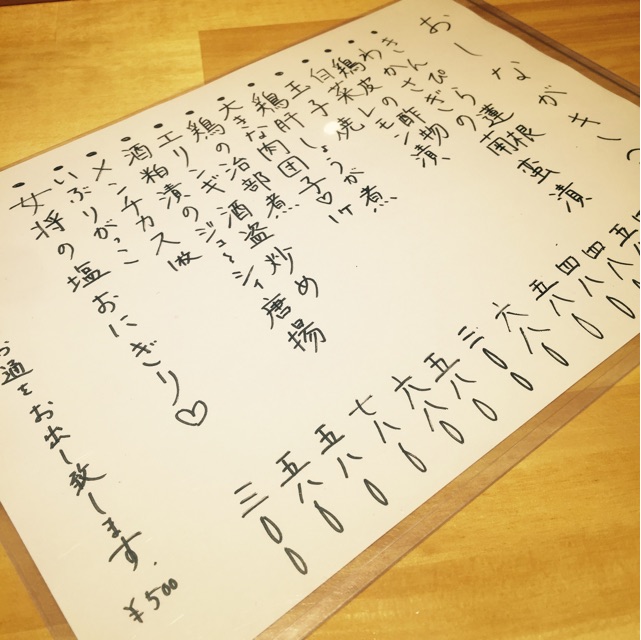 おしながき
きんぴら蓮根
わかさぎの南蛮漬 五八〇
鶏皮の酢の物 四八〇
白菜レモン漬 四八〇
玉子焼 五八〇
鶏肝しょうが煮 六八〇
大きな肉団子♡1ケ 三〇〇
鶏の治部煮 五八〇
エリンギの酒盗炒め 六八〇
酒粕漬のジューシィ唐揚 七八〇
メンチカス 1枚 五八〇
いぶりがっこ 五八〇
女将の塩おにぎり♡ 三〇〇
お通をお出し致します.
¥500